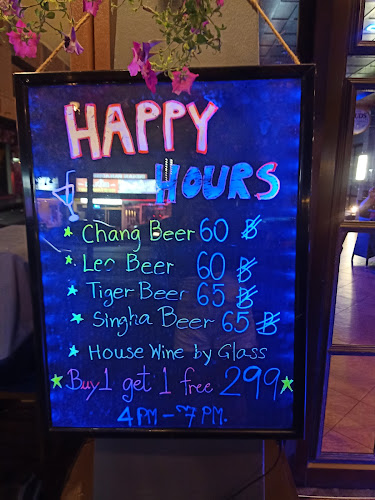 HAPPY
HOURS
Chang Beer 60 ฿
Leo Beer 60 ฿
Tiger Beer 65 ฿
Singha Beer 65 ฿
House Wine by Glass
Buy 1 get 1 free 299
4 PM - 7 PM.